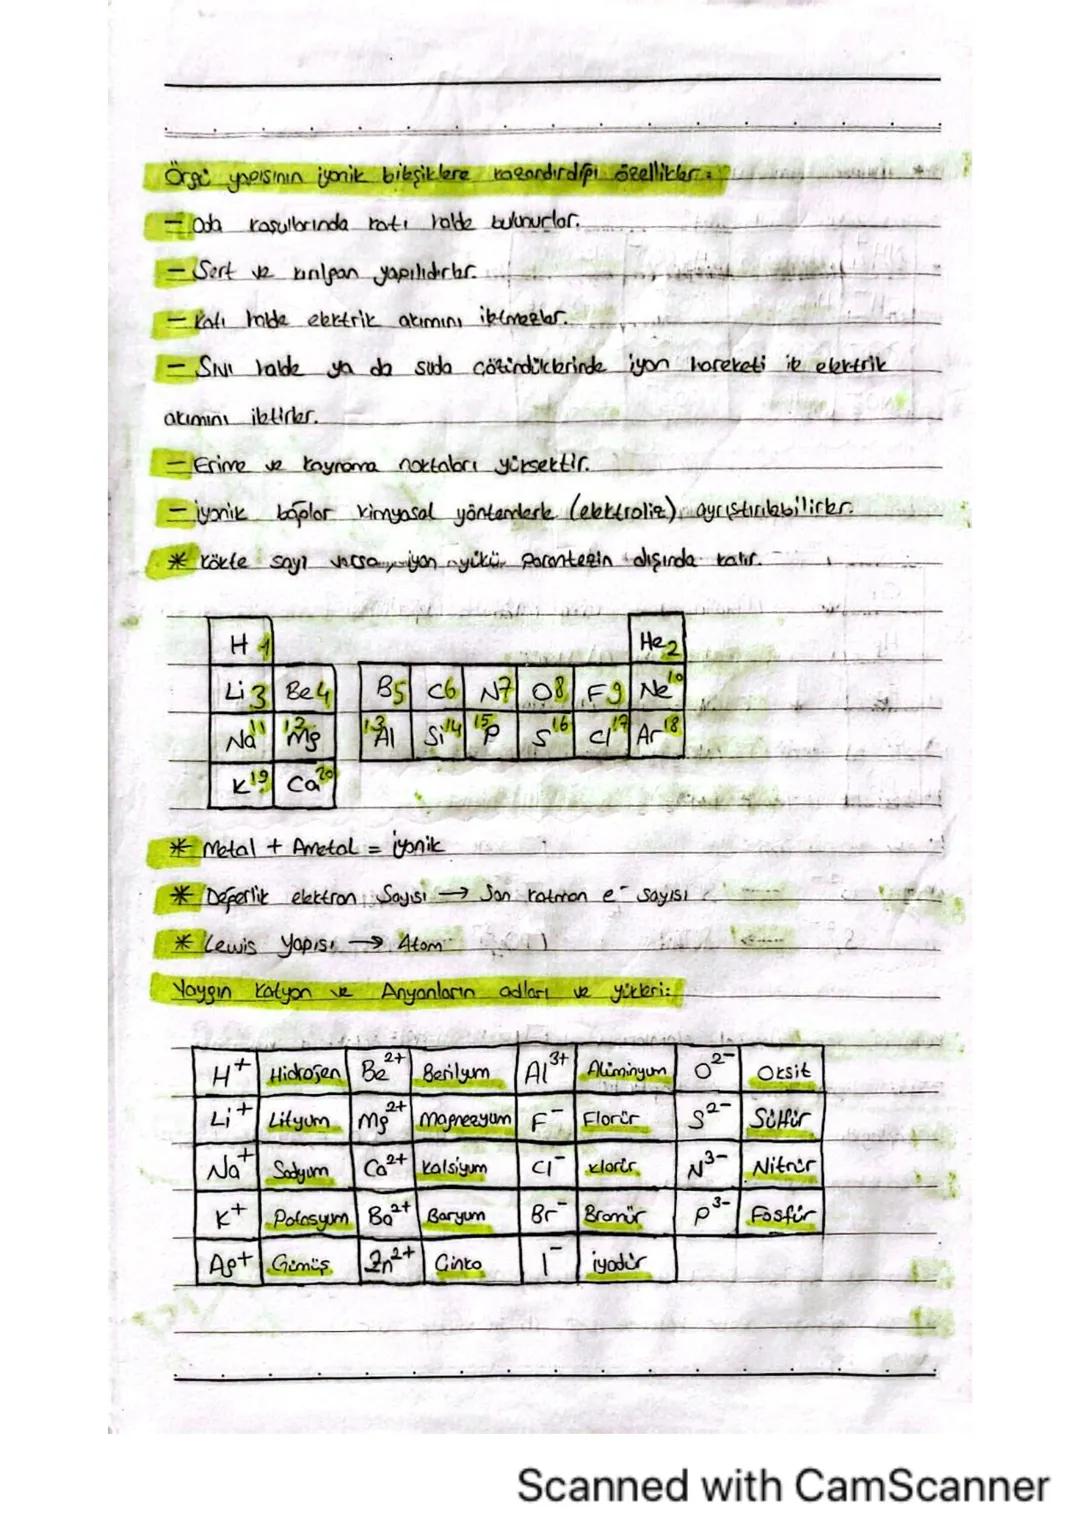 Örgü yapısının iyonik bileşiklere kazandırdığı özellikler:
- Oda koşullarında katı halde bulunurlar.
- Sert ve kırılgan yapılıdırlar.
- Katı halde elektrik akımını iletmezler.
- Sıvı halde ya da suda çözündüklerinde iyon hareketi ile elektrik
akımını iletirler.
- Erime ve kaynama noktaları yüksektir.
- iyonik bağlar kimyasal yöntemlerle (elektroliz) ayrıştırılabilirler.
* Kökte sayı varsa iyon yükü parantezin dışında kalır.
H 1 He 2
Li 3 Be 4 B 5 C 6 N 7 O 8 F 9 Ne 10
Na 11 12 Mg 13 Al Si 14 15 P S 16 Cl 17 Ar 18
K 19 Ca 20
* Metal + Ametal = iyonik
* Değerlik elektron Sayısı → Son katman e⁻ sayısı
* Lewis Yapısı → Atom
Yaygın Katyon ve Anyonların adları ve yükleri:
H⁺ Hidrojen Be²⁺ Berilyum Al³⁺ Alüminyum O²⁻ Oksit
Li⁺ Lityum Mg²⁺ Magnezyum F⁻ Florür S²⁻ Sülfür
Na⁺ Sodyum Ca²⁺ Kalsiyum Cl⁻ Klorür N³⁻ Nitrür
K⁺ Potasyum Ba²⁺ Baryum Br⁻ Bromür P³⁻ Fosfür
Ag⁺ Gümüş Zn²⁺ Çinko I⁻ iyodür
Scanned with CamScanner